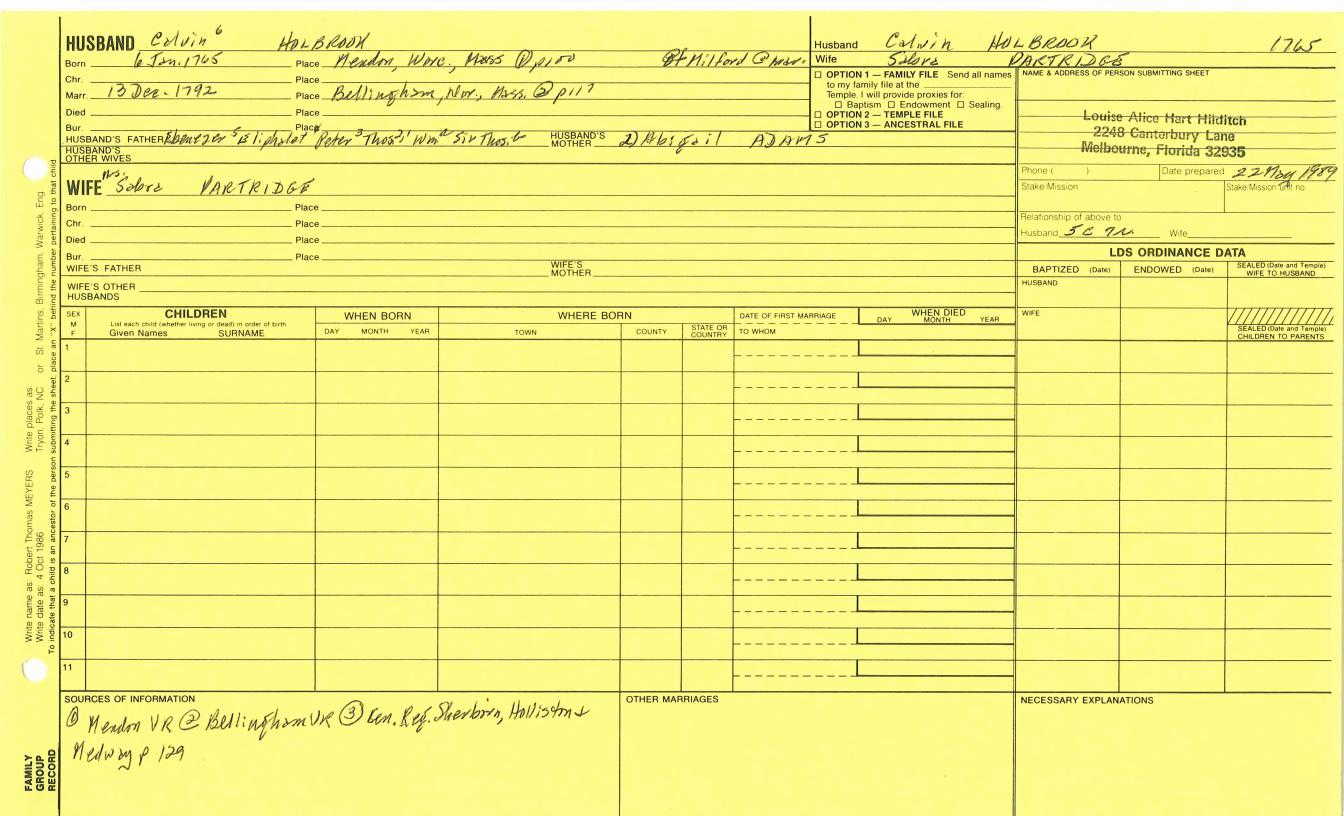 HUSBAND Calvin 6 HOLBROOK
Born 6 Jan. 1765 Place Mendon, Worc., Mass ① p100 Of Milford @ marr.
Chr. Place
Marr 13 Dec. 1792 Place Bellingham, Nor., Mass. ② p117
Died Place
Bur. Place
HUSBAND'S FATHER Ebenezer 5 Eliphalet Peter 3 Thos 2, 1 Wm Sir Thos. HUSBAND'S MOTHER 2) Abigail ADAMS
HUSBAND'S OTHER WIVES
WIFE Ms. Sabra PARTRIDGE
Born Place
Chr. Place
Died Place
Bur. Place
WIFE'S FATHER WIFE'S MOTHER
WIFE'S OTHER HUSBANDS
Husband Calvin HOLBROOK 1765
Wife Sabra PARTRIDGE
☐ OPTION 1 — FAMILY FILE Send all names
to my family file at the
Temple. I will provide proxies for:
☐ Baptism ☐ Endowment ☐ Sealing.
☐ OPTION 2 — TEMPLE FILE
☐ OPTION 3 — ANCESTRAL FILE
NAME & ADDRESS OF PERSON SUBMITTING SHEET
Louise Alice Hart Hilditch
2248 Canterbury Lane
Melbourne, Florida 32935
Phone ( ) Date prepared 22 May 1989
Stake Mission Stake Mission unit no.
Relationship of above to
Husband 5C 7R Wife
LDS ORDINANCE DATA
BAPTIZED (Date) ENDOWED (Date) SEALED (Date and Temple) WIFE TO HUSBAND
HUSBAND
WIFE
SEALED (Date and Temple) CHILDREN TO PARENTS
SEX M F
CHILDREN
List each child (whether living or dead) in order of birth
Given Names SURNAME
WHEN BORN
DAY MONTH YEAR
WHERE BORN
TOWN COUNTY STATE OR COUNTRY
DATE OF FIRST MARRIAGE
TO WHOM
WHEN DIED
DAY MONTH YEAR
1
2
3
4
5
6
7
8
9
10
11
SOURCES OF INFORMATION
① Mendon VR ② Bellingham VR ③ Gen. Reg. Sherborn, Holliston &
Medway p 129
OTHER MARRIAGES
NECESSARY EXPLANATIONS
Write name as: Robert Thomas MEYERS Write places as: Tryon, Polk, NC or St. Martins, Birmingham, Warwick, Eng.
Write date as: 4 Oct 1986
To indicate that a child is an ancestor of the person submitting the sheet, place an "X" behind the number pertaining to that child
FAMILY
GROUP
RECORD